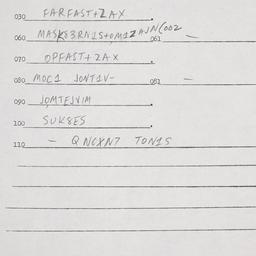 030 FARFAST+ZAX.
060 MASKEBRN1S+OM1ZAJN(002
061 —
070 OPFAST+ZAX.
080 MOC1 JONT1V- 081 —
090 JOMTEJVIM.
100 SUK8ES.
110 - QNCXN7 TON1S